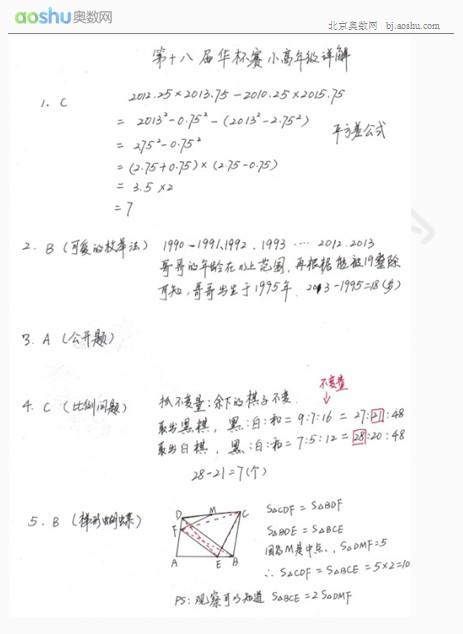 aoshu奥数网
北京奥数网 bj.aoshu.com
第十八届华杯赛小高年级详解
1. C 2012.25×2013.75－2010.25×2015.75
= 2013²－0.75²－(2013²－2.75²)
= 2.75²－0.75² 平方差公式
= (2.75+0.75)×(2.75-0.75)
= 3.5×2
= 7
2. B (可爱的枚举法) 1990－1991、1992、1993 ···· 2012、2013
哥哥的年龄在以上范围，再根据能被19整除
可知，哥哥出生于1995年. 2013－1995=18(岁)
3. A (公开题)
不变量
4. C (比例问题) 抓不变量：余下的棋子不变.
取出黑棋，黑:白:和=9:7:16 = 27:21:48
取出白棋，黑:白:和=7:5:12 = 28:20:48
28－21=7(个)
5. B (梯形蝴蝶) S△CDF = S△BDF
S△BDE = S△BCE
因为M是中点，S△DMF=5
∴ S△CDF = S△BCE = 5×2=10
D M C
F
A E B
PS: 观察可以知道 S△BCE = 2S△DMF